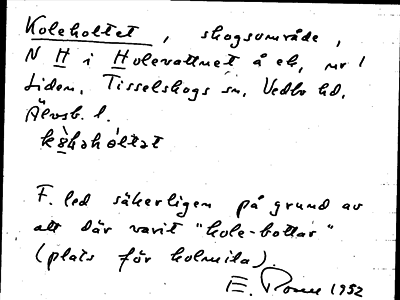 Koleholtet, skogsområde,
N H i Holevattnet å ek, nr 1
Liden. Tisselskogs sn. Vedbo hd.
Älvsb. l.
F. led säkerligen på grund av
att där varit "kole-bottar"
(plats för kolmila).
E. 1952